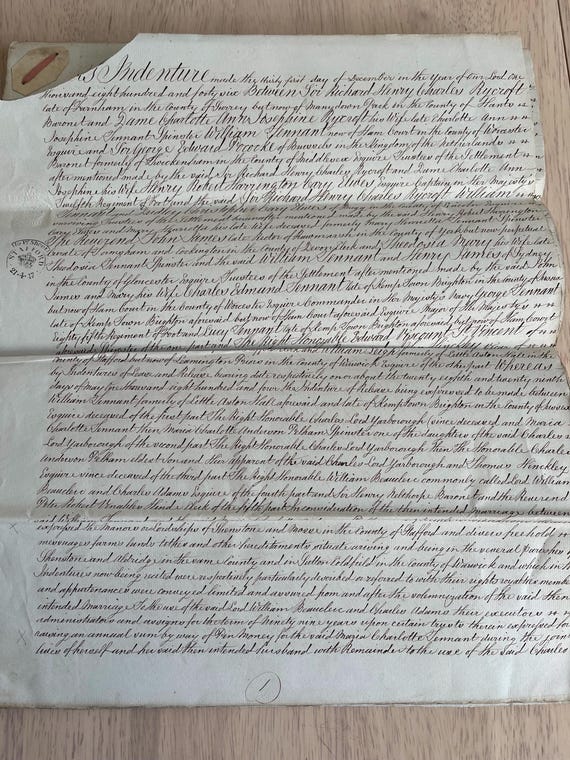 This Indenture made the thirty first day of December in the Year of Our Lord One
thousand and eight hundred and forty six Between Sir Richard Henry Charles Rycroft
late of Farnham in the County of Surrey but now of in the County of Hants
Baronet and Dame Charlotte Anne Josephine Rycroft his Wife late Charlotte Ann
Josephine Tennant Spinster William Tennant now of Ham Court in the County of Worcester
Esquire and Sir George Edward Pococke of Brussels in the Kingdom of the Netherlands
Baronet formerly of Twickenham in the County of Middlesex Esquire Trustees of the Settlement
after mentioned made by the said Sir Richard Henry Charles Rycroft and Dame Charlotte Ann
Josephine his Wife Henry Robert Harrington Cary Elwes Esquire Captain in Her Majesty's
Twelfth Regiment of Foot and the said Sir Richard Henry Charles Rycroft William
Tennant and
mentioned made by the said Henry Robert Harrington
Cary Elwes and Mary his Wife deceased formerly Tennant Spinster
The Reverend John James late Rector of in the County of York but now perpetual
Curate of and in the County of and Theodosia Mary his Wife late
Theodosia Tennant Spinster and the said William Tennant and Henry James of
in the County of Gloucester Esquire Trustees of the Settlement after mentioned made by the said
James and Mary his Wife Charles Edmund Tennant late of Kemp Town Brighton in the County of Sussex
but now of Ham Court in the County of Worcester Esquire Commander in Her Majesty's Navy George Tennant
late of Kemp Town Brighton aforesaid but now of Ham Court aforesaid Esquire Major of Her Majesty's
Eighty fifth Regiment of Foot and Lucy Tennant late of Kemp Town Brighton aforesaid but now of Ham Court
aforesaid Spinster of the one part and The Right Honorable Edward Viscount St Vincent of
in the County of Stafford and William Leigh formerly of Little Aston Hall in the
of Leamington Priors in the County of Warwick Esquire of the other part Whereas
by Indentures of Lease and Release bearing date respectively on or about the twenty eighth and twenty ninth
days of May One thousand eight hundred and four the Indenture of Release being expressed to be made between
William Tennant formerly of Little Aston Hall aforesaid and late of Kemptown Brighton in the County of Sussex
Esquire deceased of the first part The Right Honorable Charles Lord Yarborough since deceased and Maria
Charlotte Tennant then Maria Charlotte Anderson Pelham Spinster one of the daughters of the said Charles
Lord Yarborough of the second part The Right Honorable Charles Lord Yarborough then The Honorable Charles
Anderson Pelham eldest Son and Heir Apparent of the said Charles Lord Yarborough and Thomas Hinckley
Esquire since deceased of the third part The Right Honorable William Beauclerc commonly called Lord William
Beauclerc and Charles Adams Esquire of the fourth part and Sir Henry Nelthorpe Baronet and the Reverend
Peter Robert Clerk of the fifth part in consideration of the then intended marriage between
expressed the Manors or Lordships of Shenstone and in the County of Stafford and divers freehold
messuages farms lands tithes and other hereditaments situate arising and being in the several Parishes of
Shenstone and Aldridge in the same County and in Sutton Coldfield in the County of Warwick and which in the
Indentures now being recited were respectively particularly described or referred to with their rights royalties members
and appurtenances were conveyed limited and assured from and after the solemnization of the said then
intended Marriage To the use of the said Lord William Beauclerc and Charles Adams their executors
administrators and assigns for the term of Ninety nine years upon certain trusts therein expressed for
raising an annual sum by way of Pin Money for the said Maria Charlotte Tennant during the joint
lives of herself and her said then intended husband with Remainder to the use of the said Charles
1